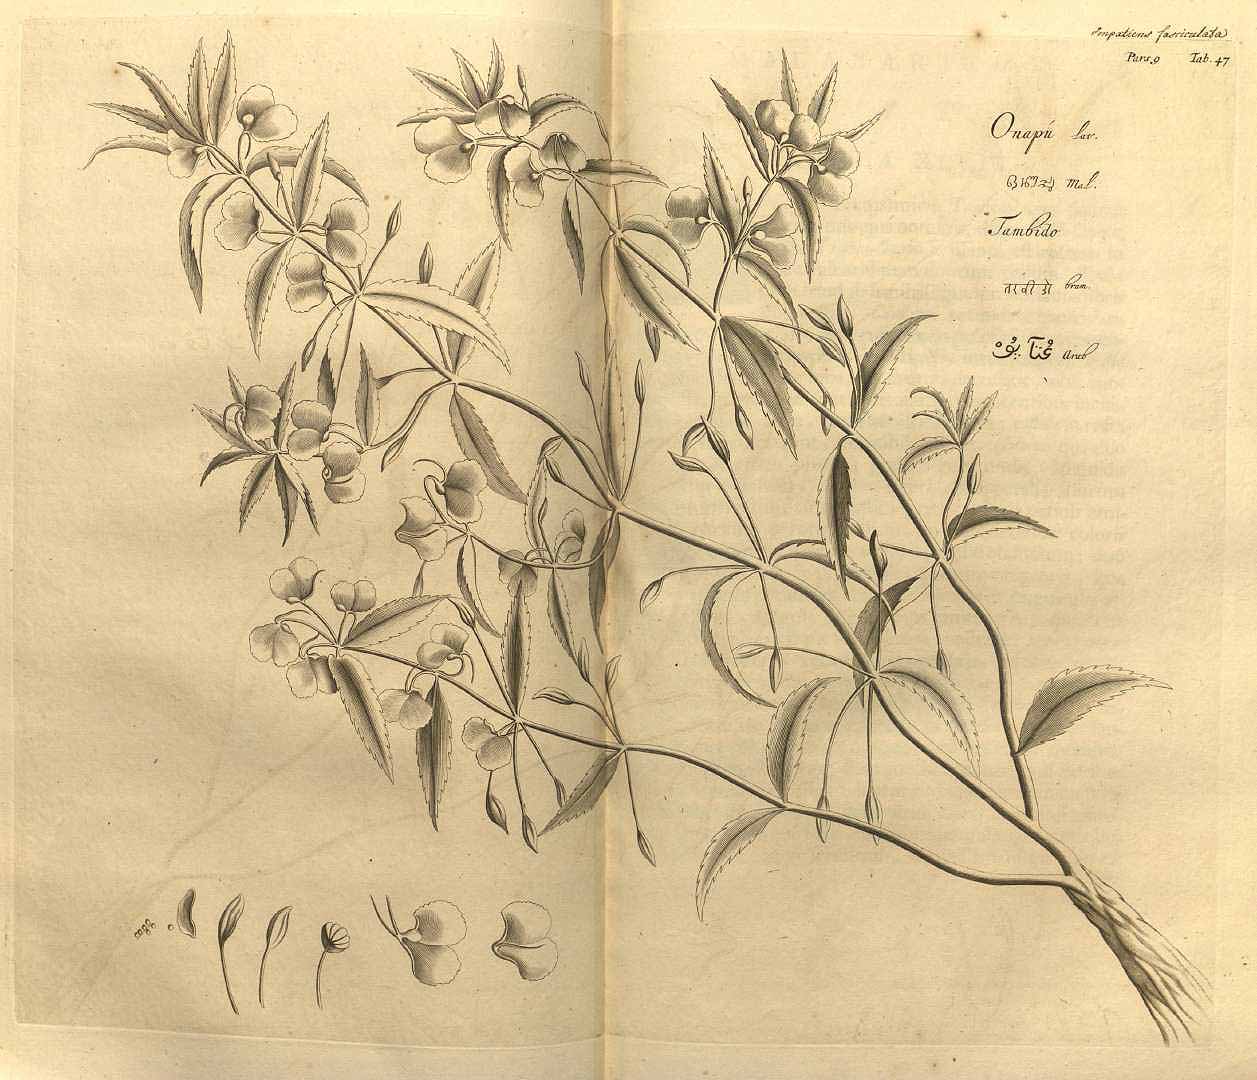 Impatiens fasciculata
Pars. 9 Tab. 47
Onapú Lat.
Mal.
Tambido
तांबीडो bram.
Arab